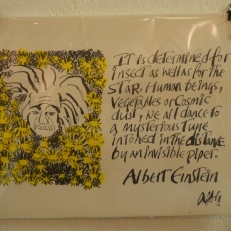 It is determined for
insect as well as for the
STAR. Human beings,
vegetables or cosmic
dust, we all dance to
a mysterious tune
intoned in the distance
by an invisible piper.
Albert Einstein